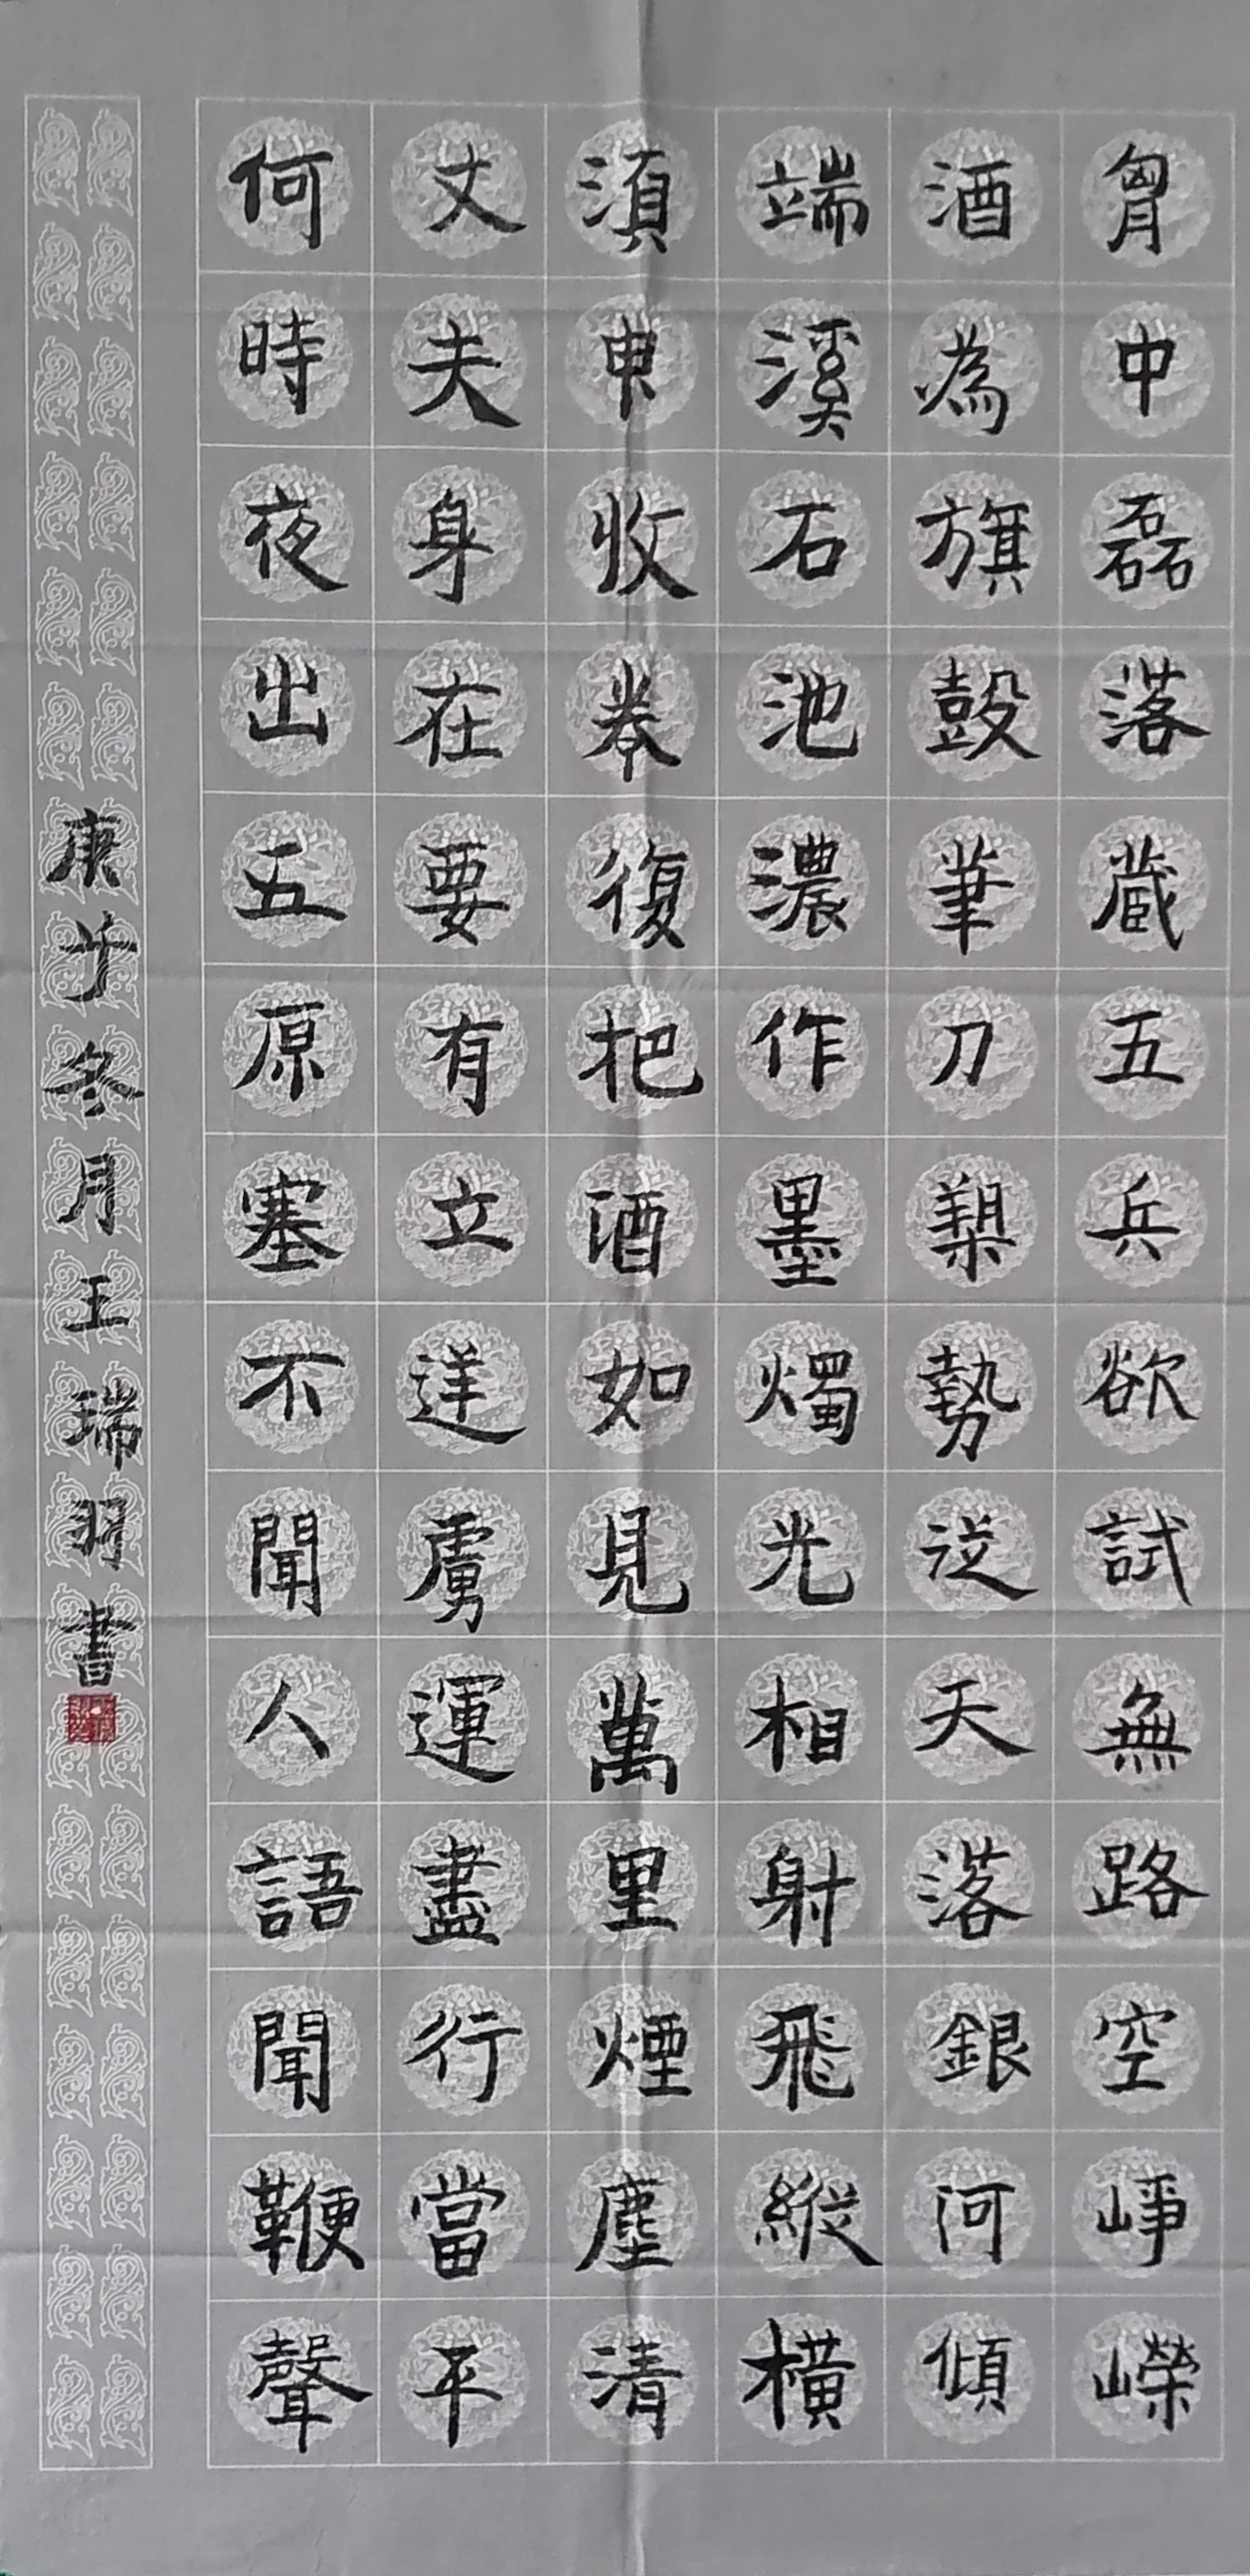 胷中磊落蔵五兵欲試無路空崢嶸
酒為旗鼓筆刀槊勢從天落銀河傾
端溪石池濃作墨燭光相射飛縱橫
須臾收卷復把酒如見萬里煙塵清
丈夫身在要有立逆虜運盡行當平
何時夜出五原塞不聞人語聞鞭聲
庚子冬月王瑞羽書